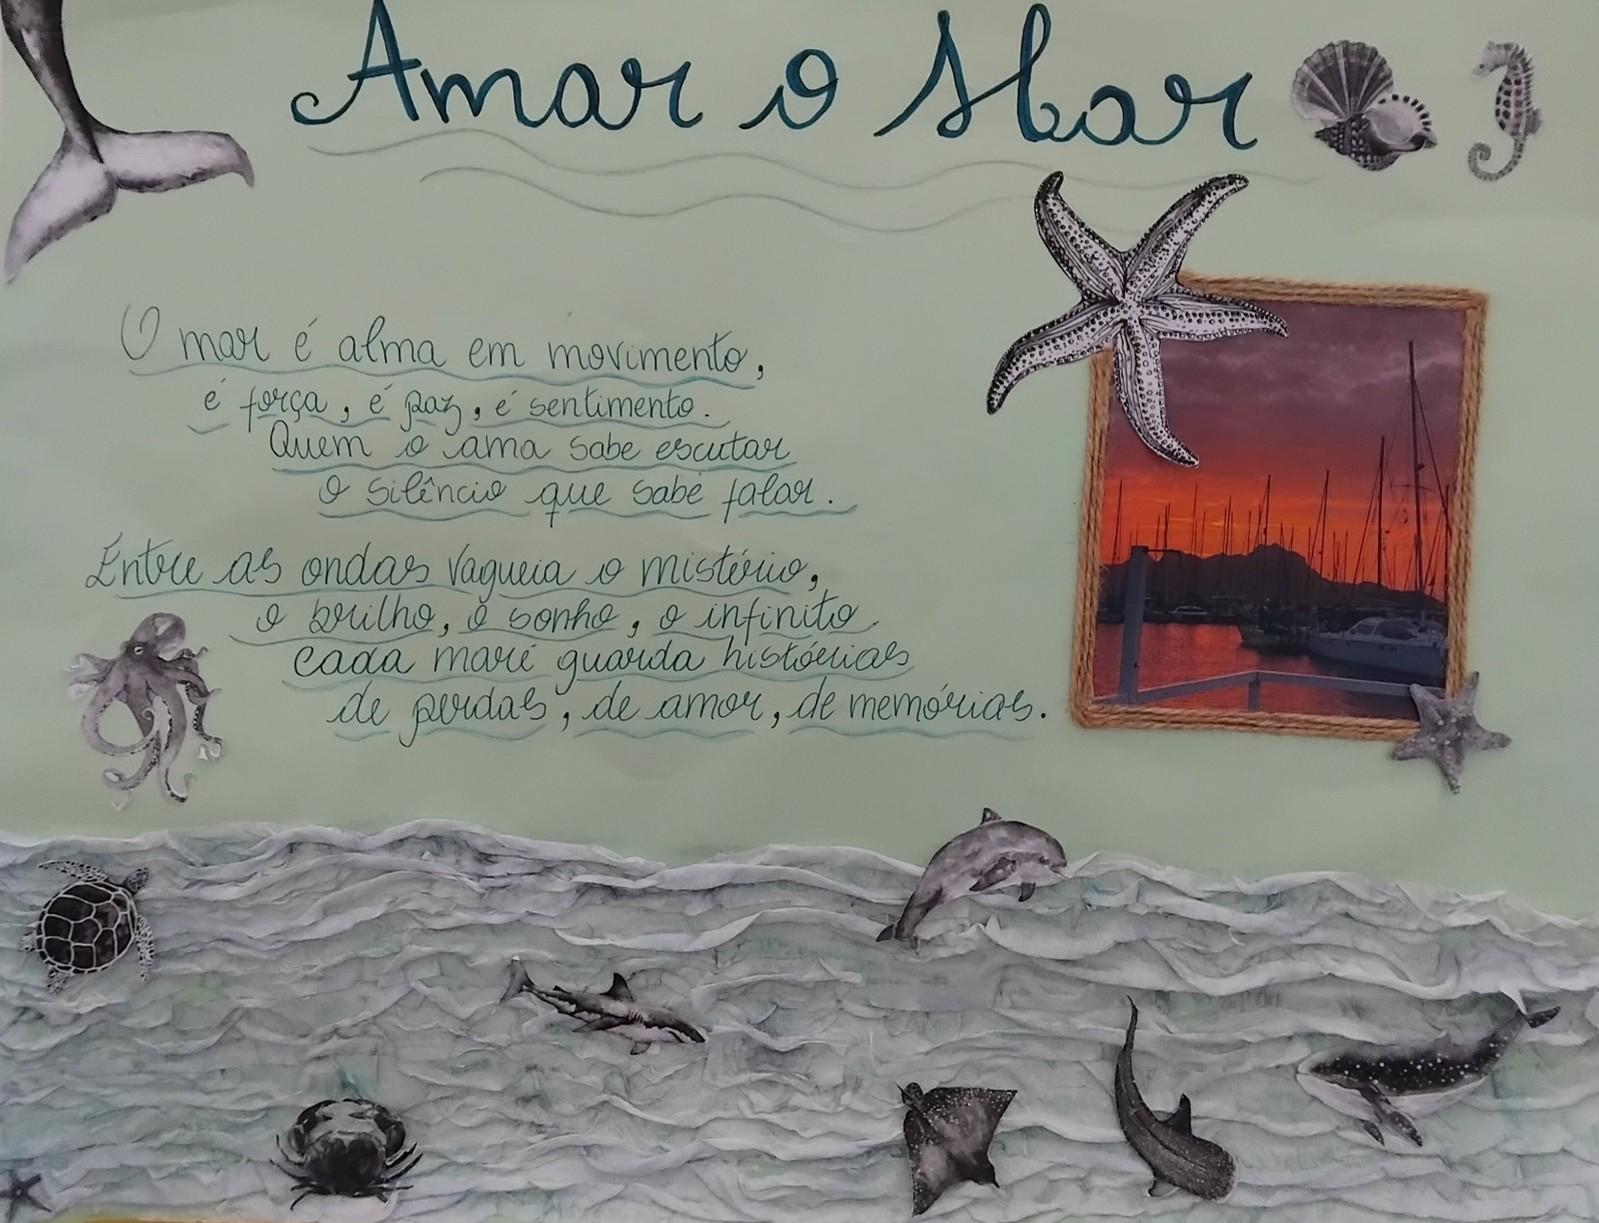 Amar o Mar
O mar é alma em movimento,
é força, é paz, é sentimento.
Quem o ama sabe escutar
o silêncio que sabe falar.
Entre as ondas vagueia o mistério,
o brilho, o sonho, o infinito.
cada maré guarda histórias
de perdas, de amor, de memórias.